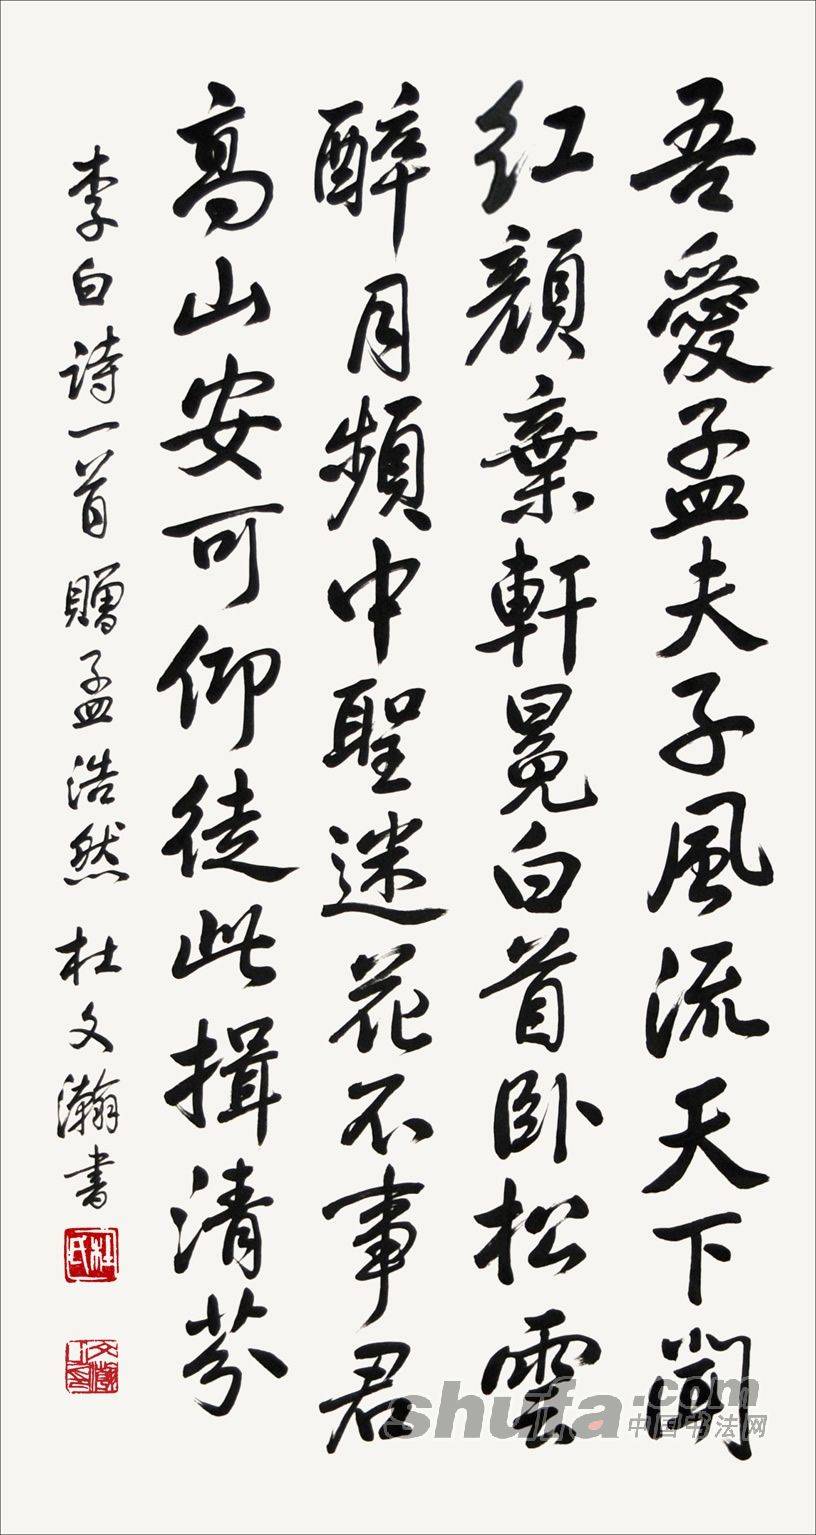 吾愛孟夫子風流天下聞
紅顔棄軒冕白首卧松雲
醉月頻中聖迷花不事君
高山安可仰徒此揖清芬
李白詩一首贈孟浩然 杜文瀚書
杜氏
文瀚之印
shufa.com
中国书法网